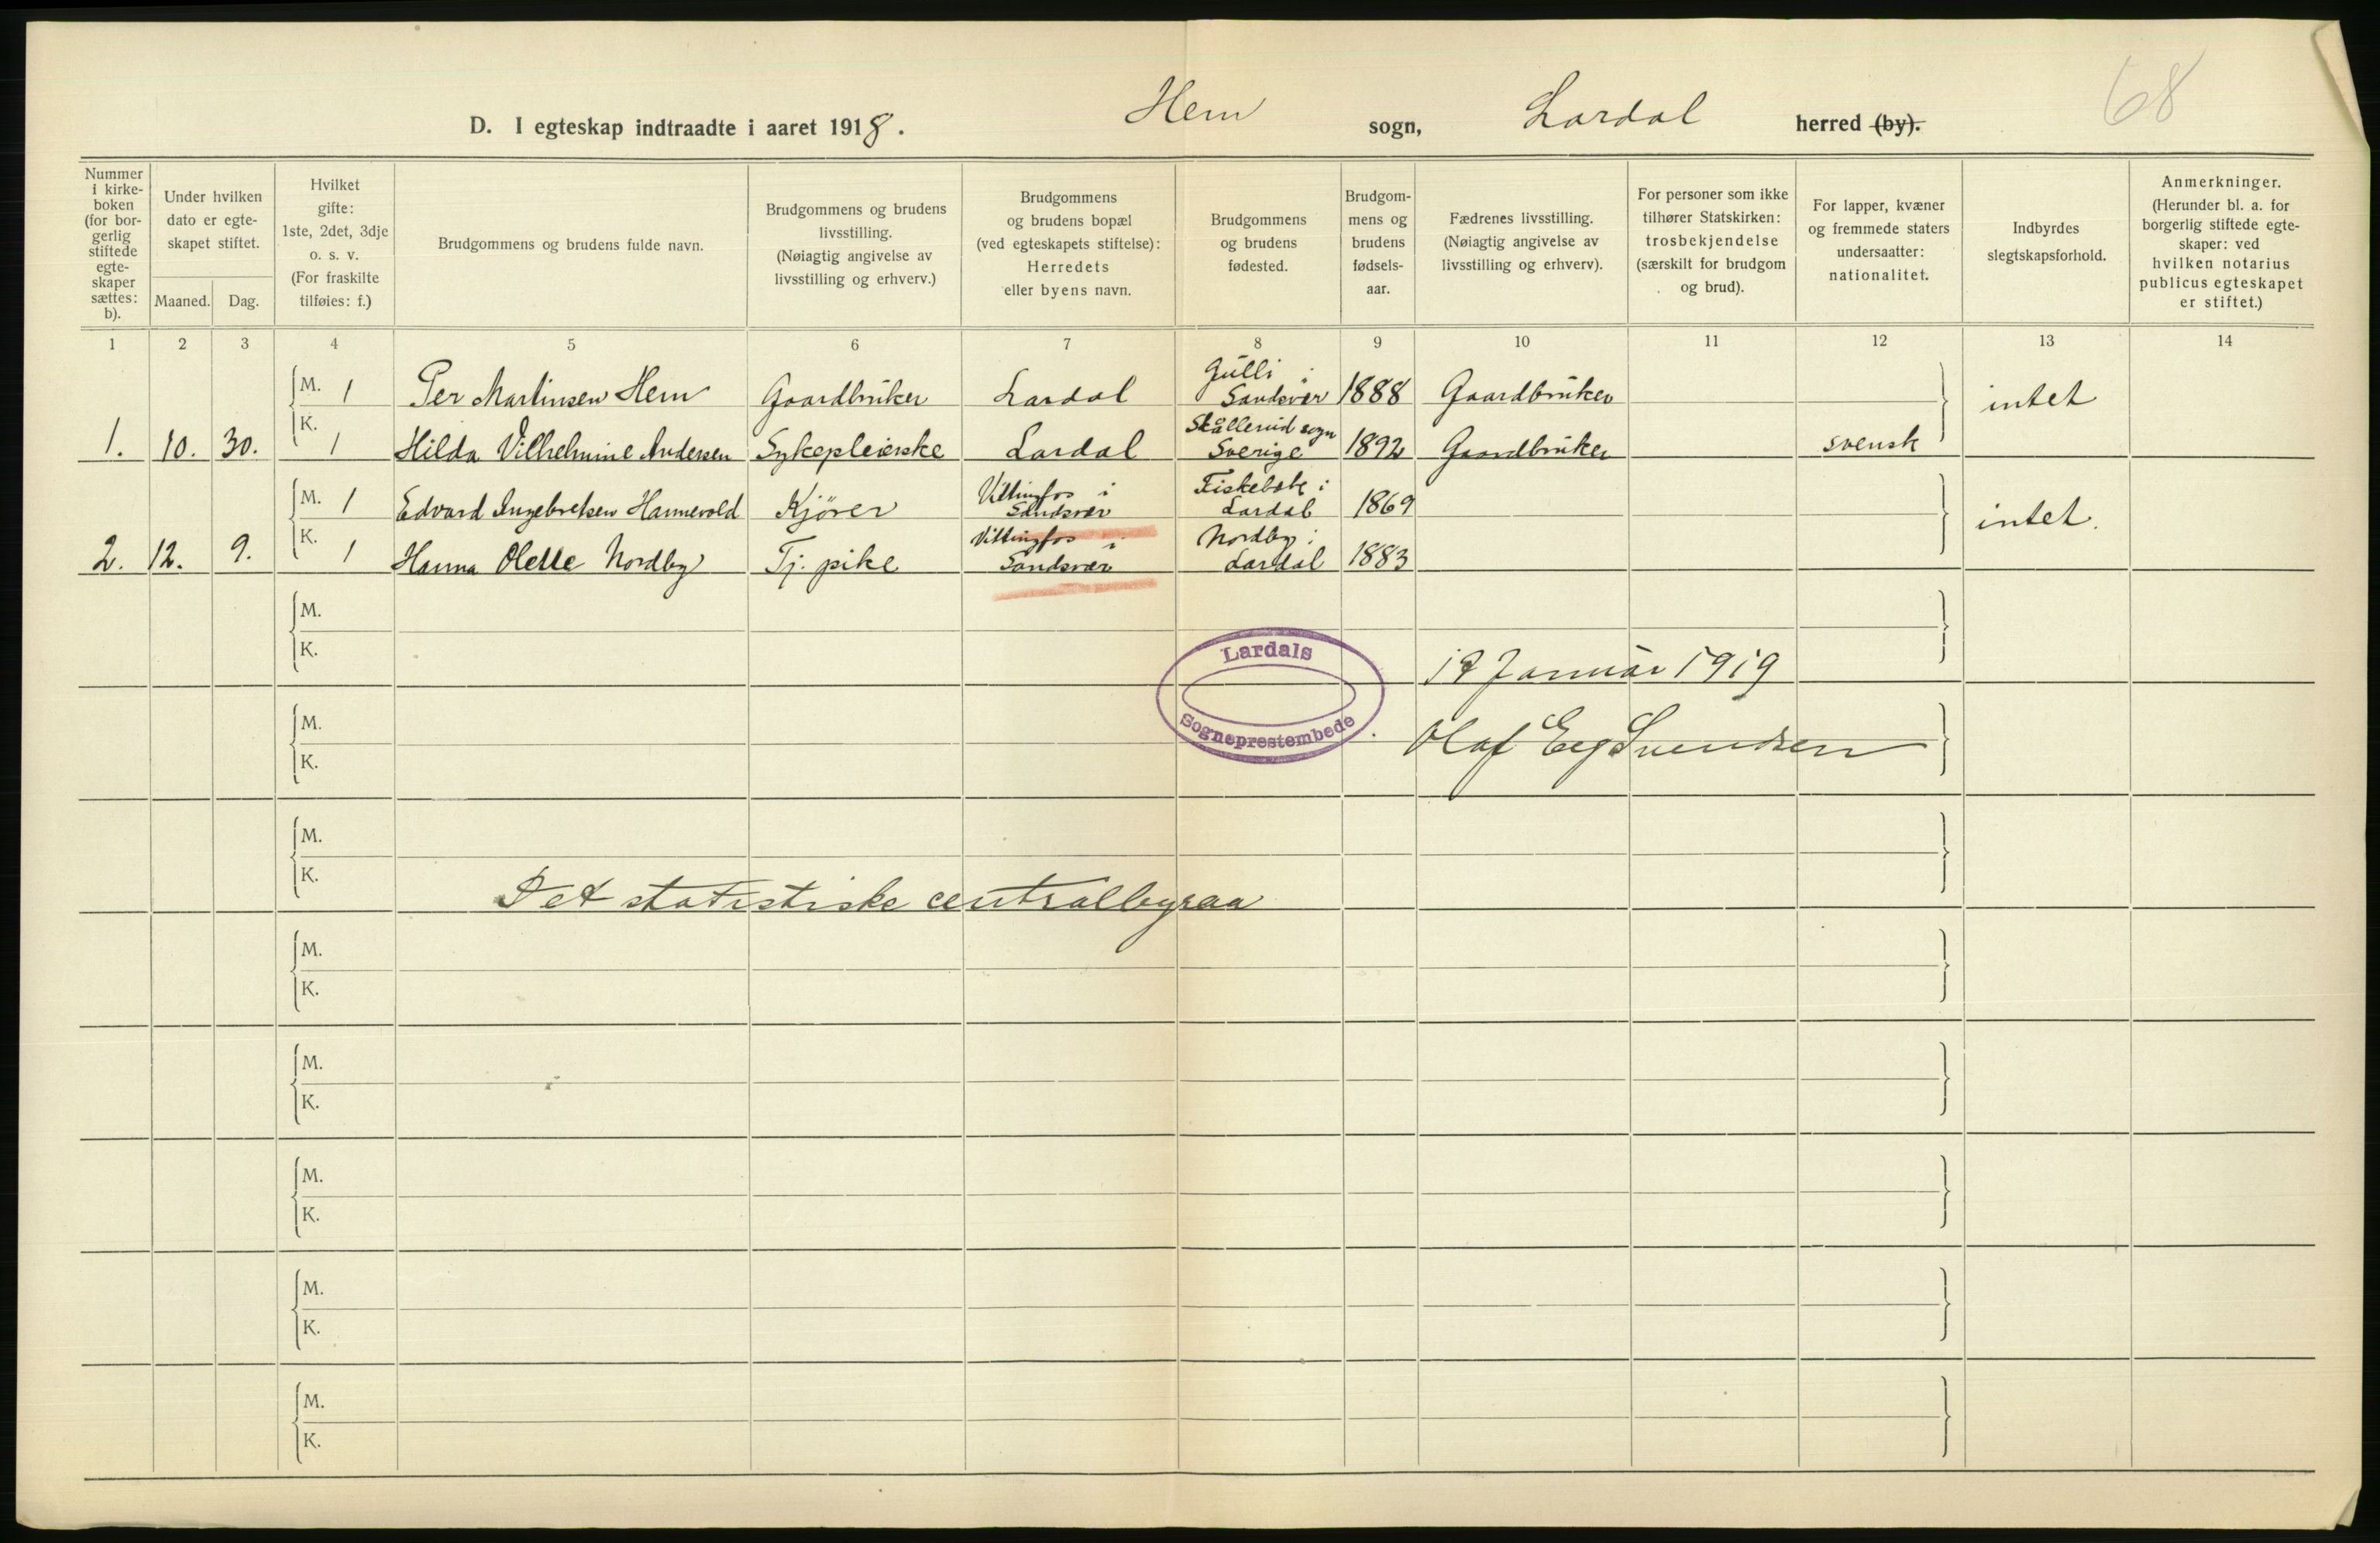 68
D. I egteskap indtraadte i aaret 1918. Hem sogn, Lardal herred (by).
Nummer i kirkeboken (for borgerlig stiftede egteskaper sættes: b).
Under hvilken dato er egteskapet stiftet.
Maaned. Dag.
Hvilket gifte: 1ste, 2det, 3dje o. s. v. (For fraskilte tilføies: f.)
Brudgommens og brudens fulde navn.
Brudgommens og brudens livsstilling. (Nøiagtig angivelse av livsstilling og erhverv.)
Brudgommens og brudens bopæl (ved egteskapets stiftelse): Herredets eller byens navn.
Brudgommens og brudens fødested.
Brudgommens og brudens fødselsaar.
Fædrenes livsstilling. (Nøiagtig angivelse av livsstilling og erhverv).
For personer som ikke tilhører Statskirken: trosbekjendelse (særskilt for brudgom og brud).
For lapper, kvæner og fremmede staters undersaatter: nationalitet.
Indbyrdes slegtskapsforhold.
Anmerkninger. (Herunder bl. a. for borgerlig stiftede egteskaper: ved hvilken notarius publicus egteskapet er stiftet.)
1 2 3 4 5 6 7 8 9 10 11 12 13 14
M. 1 Per Martinsen Hem Gaardbruker Lardal Gulli i Sandsvær 1888 Gaardbruker intet
1. 10. 30. K. 1 Hilda Vilhelmine Andersen Sykepleierske Lardal Skållerud sogn Sverige 1892 Gaardbruker svensk
M. 1 Edvard Ingebretsen Hannevold Kjører Vittingfos i Sandsvær Fiskebæk i Lardal 1869 intet.
2. 12. 9. K. 1 Hanna Olette Nordby Tj. pike Vittingfos i Sandsvær Nordby i Lardal 1883
M.
K.
Lardals Sogneprestembede
Januar 1919
M.
K.
Olaf Eeg Svendsen
M.
K.
Det statistiske centralbyraa
M.
K.
M.
K.
M.
K.
M.
K.
M.
K.